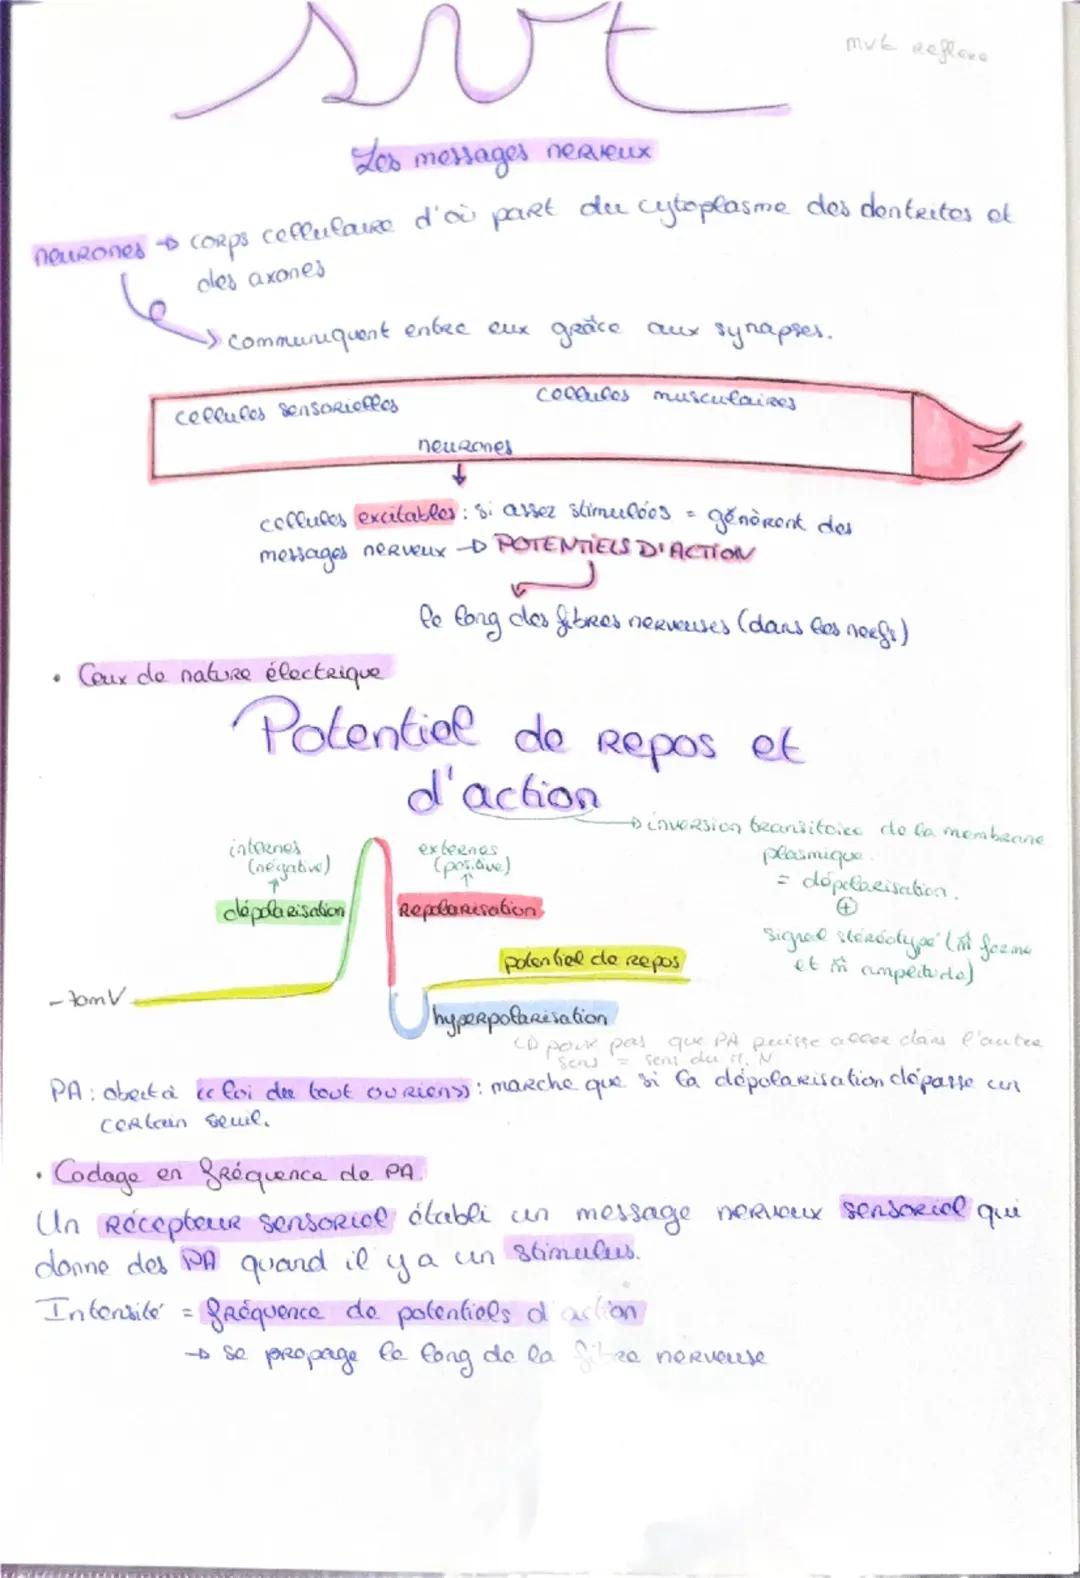 svt
mvt Reflexe
Les messages nerveux
neurones → corps cellulaire d'où part du cytoplasme des dentrites et
des axones
communiquent entre eux grâce aux synapses.
cellules sensorielles
cellules musculaires
neurones
cellules excitables : si assez stimulées = génèrent des
messages nerveux → POTENTIELS D'ACTION
le long des fibres nerveuses (dans les nerfs)
• Ceux de nature électrique
Potentiel de repos et
d'action
→ inversion transitoire de la membrane
plasmique.
= dépolarisation.
⊕
signal stéréotypé (m̂ forme
et m̂ amplitude)
internes
(négative)
↑
dépolarisation
externes
(positive)
↑
Repolarisation
potentiel de repos
-70mV
hyperpolarisation
↳ pour pas que PA puisse aller dans l'autre
sens = sens du M.N
PA : obeit à << loi du tout ou rien >> : marche que si la dépolarisation dépasse un
certain seuil.
• Codage en fréquence de PA.
Un Récepteur sensoriel établi un message nerveux sensoriel qui
donne des PA quand il y a un stimulus.
Intensité = fréquence de potentiels d'action
→ se propage le long de la fibre nerveuse